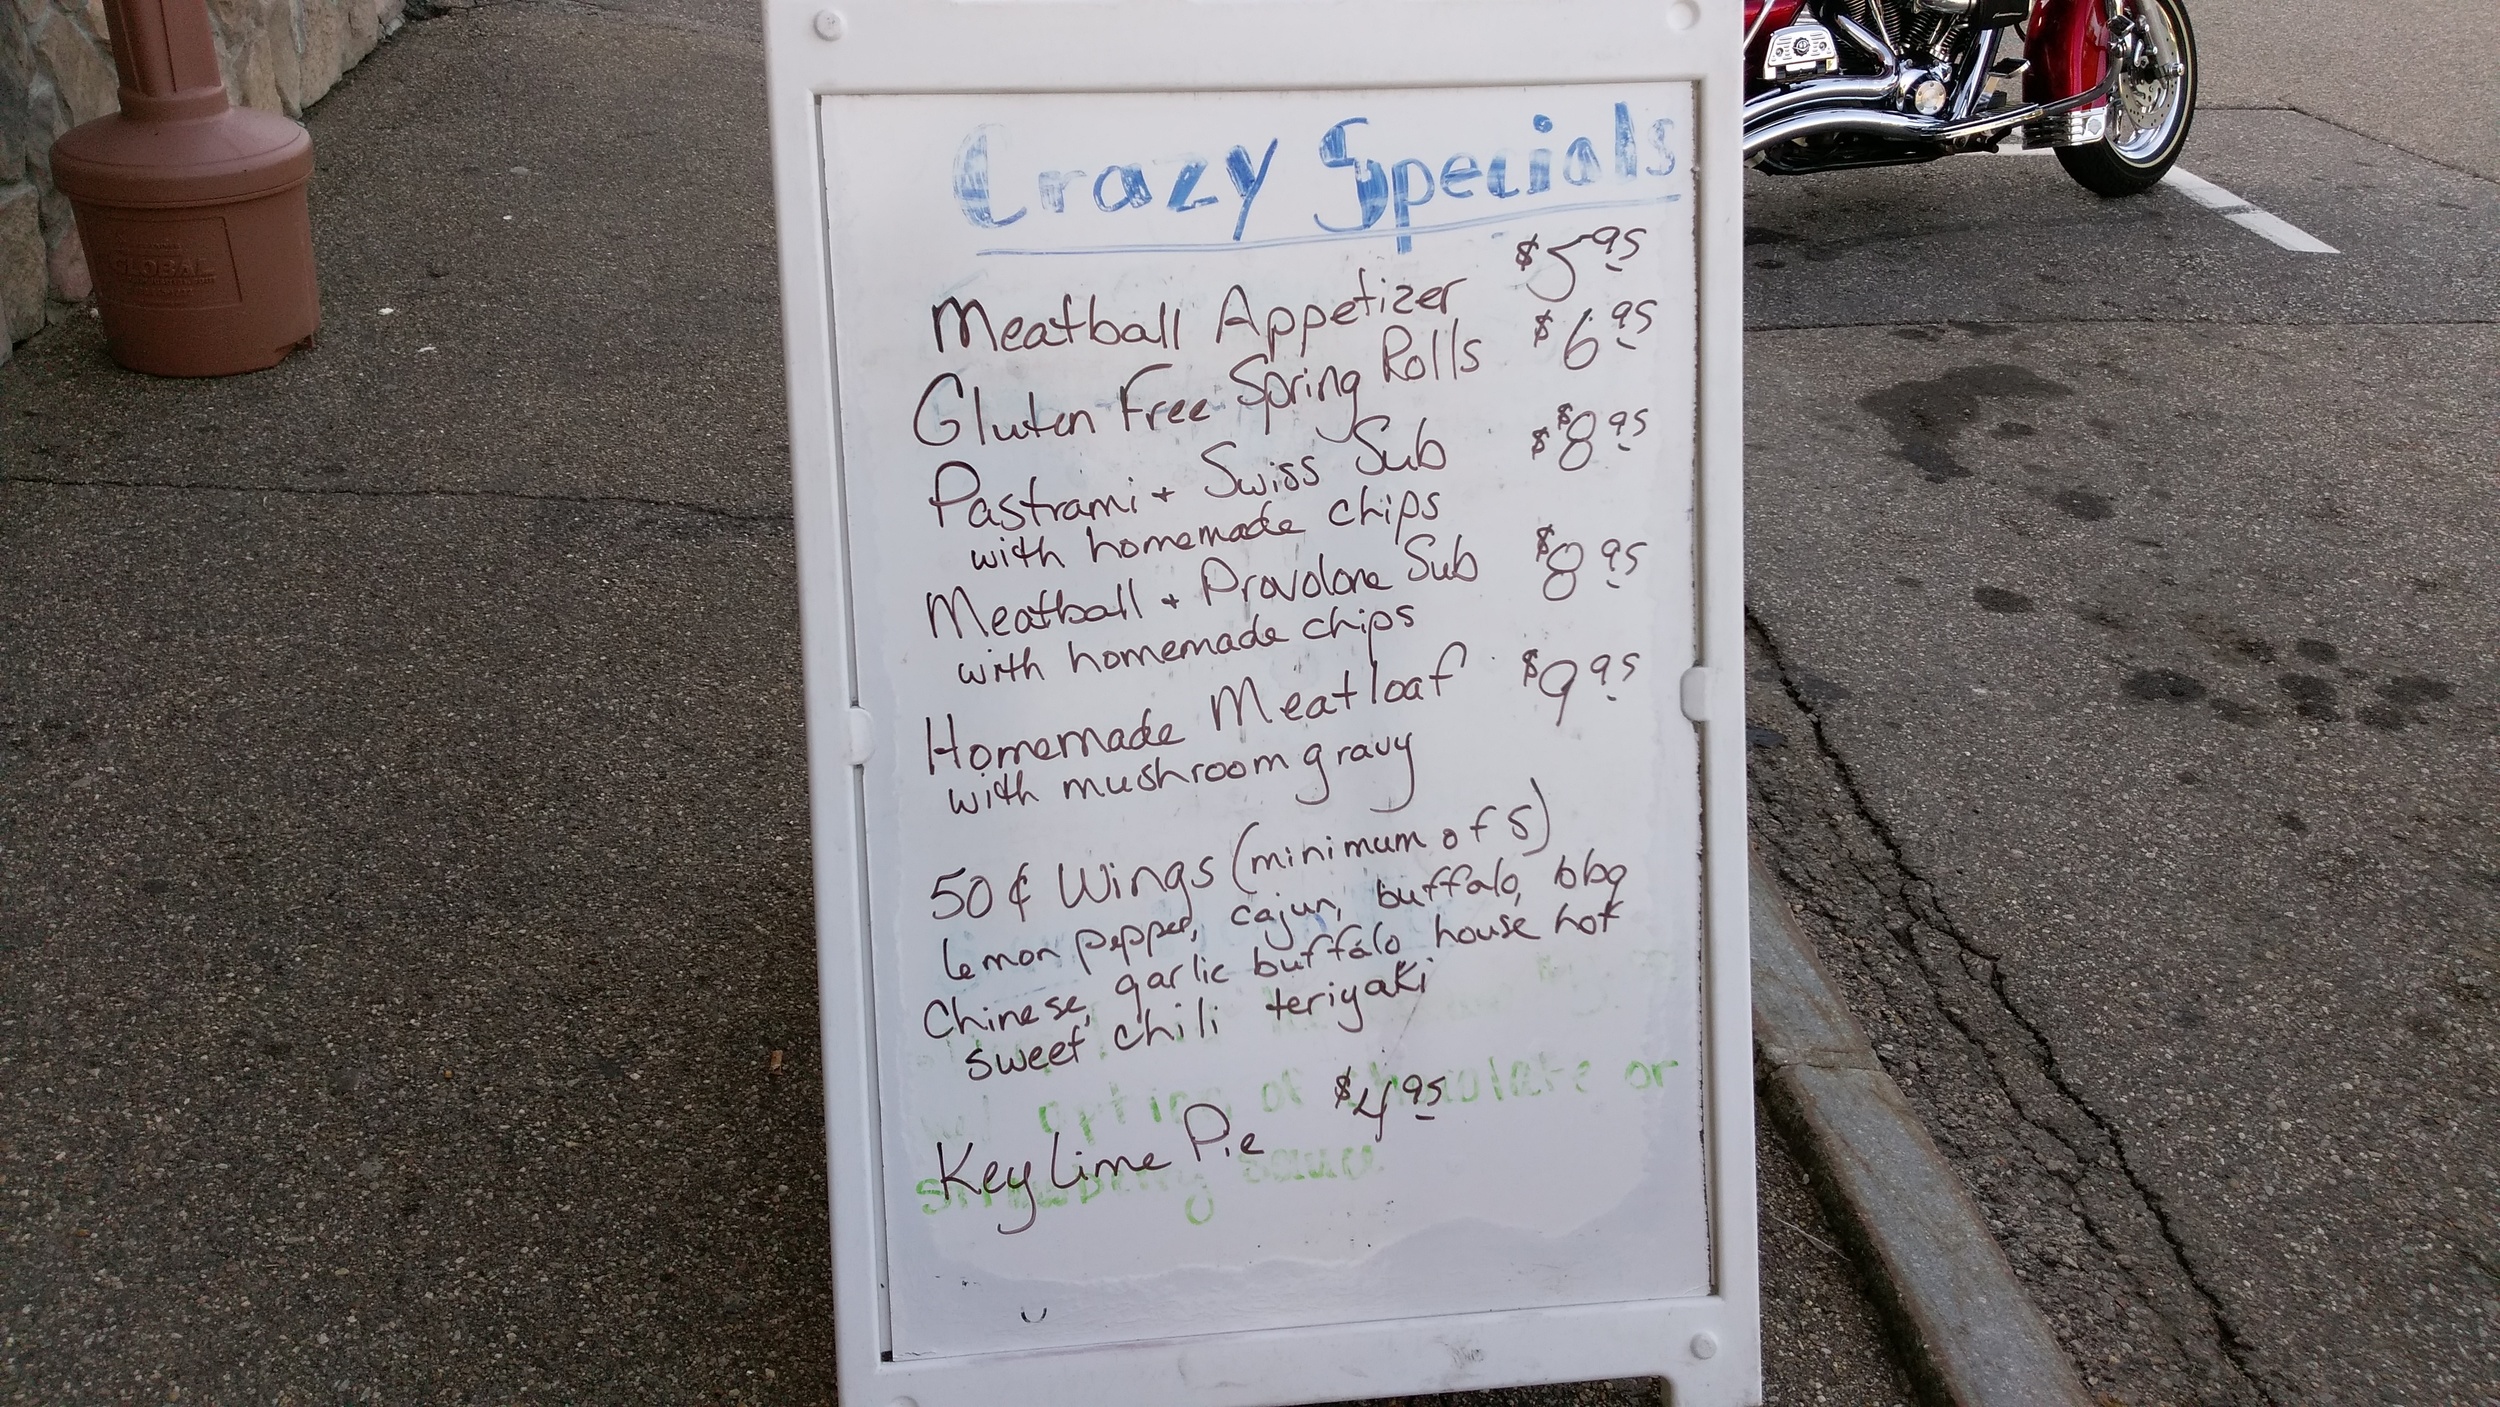 Crazy Specials
Meatball Appetizer $5.95
Gluten Free Spring Rolls $6.95
Pastrami + Swiss Sub $ $8.95
with homemade chips
Meatball + Provolone Sub $8.95
with homemade chips
Homemade Meatloaf $9.95
with mushroom gravy
50¢ Wings (minimum of 5)
Lemon pepper, cajun, buffalo, bbq
Chinese, garlic buffalo house hot
sweet chili teriyaki
w/ option of chocolate or
Key Lime Pie $4.95
strawberry sauce
GLOBAL